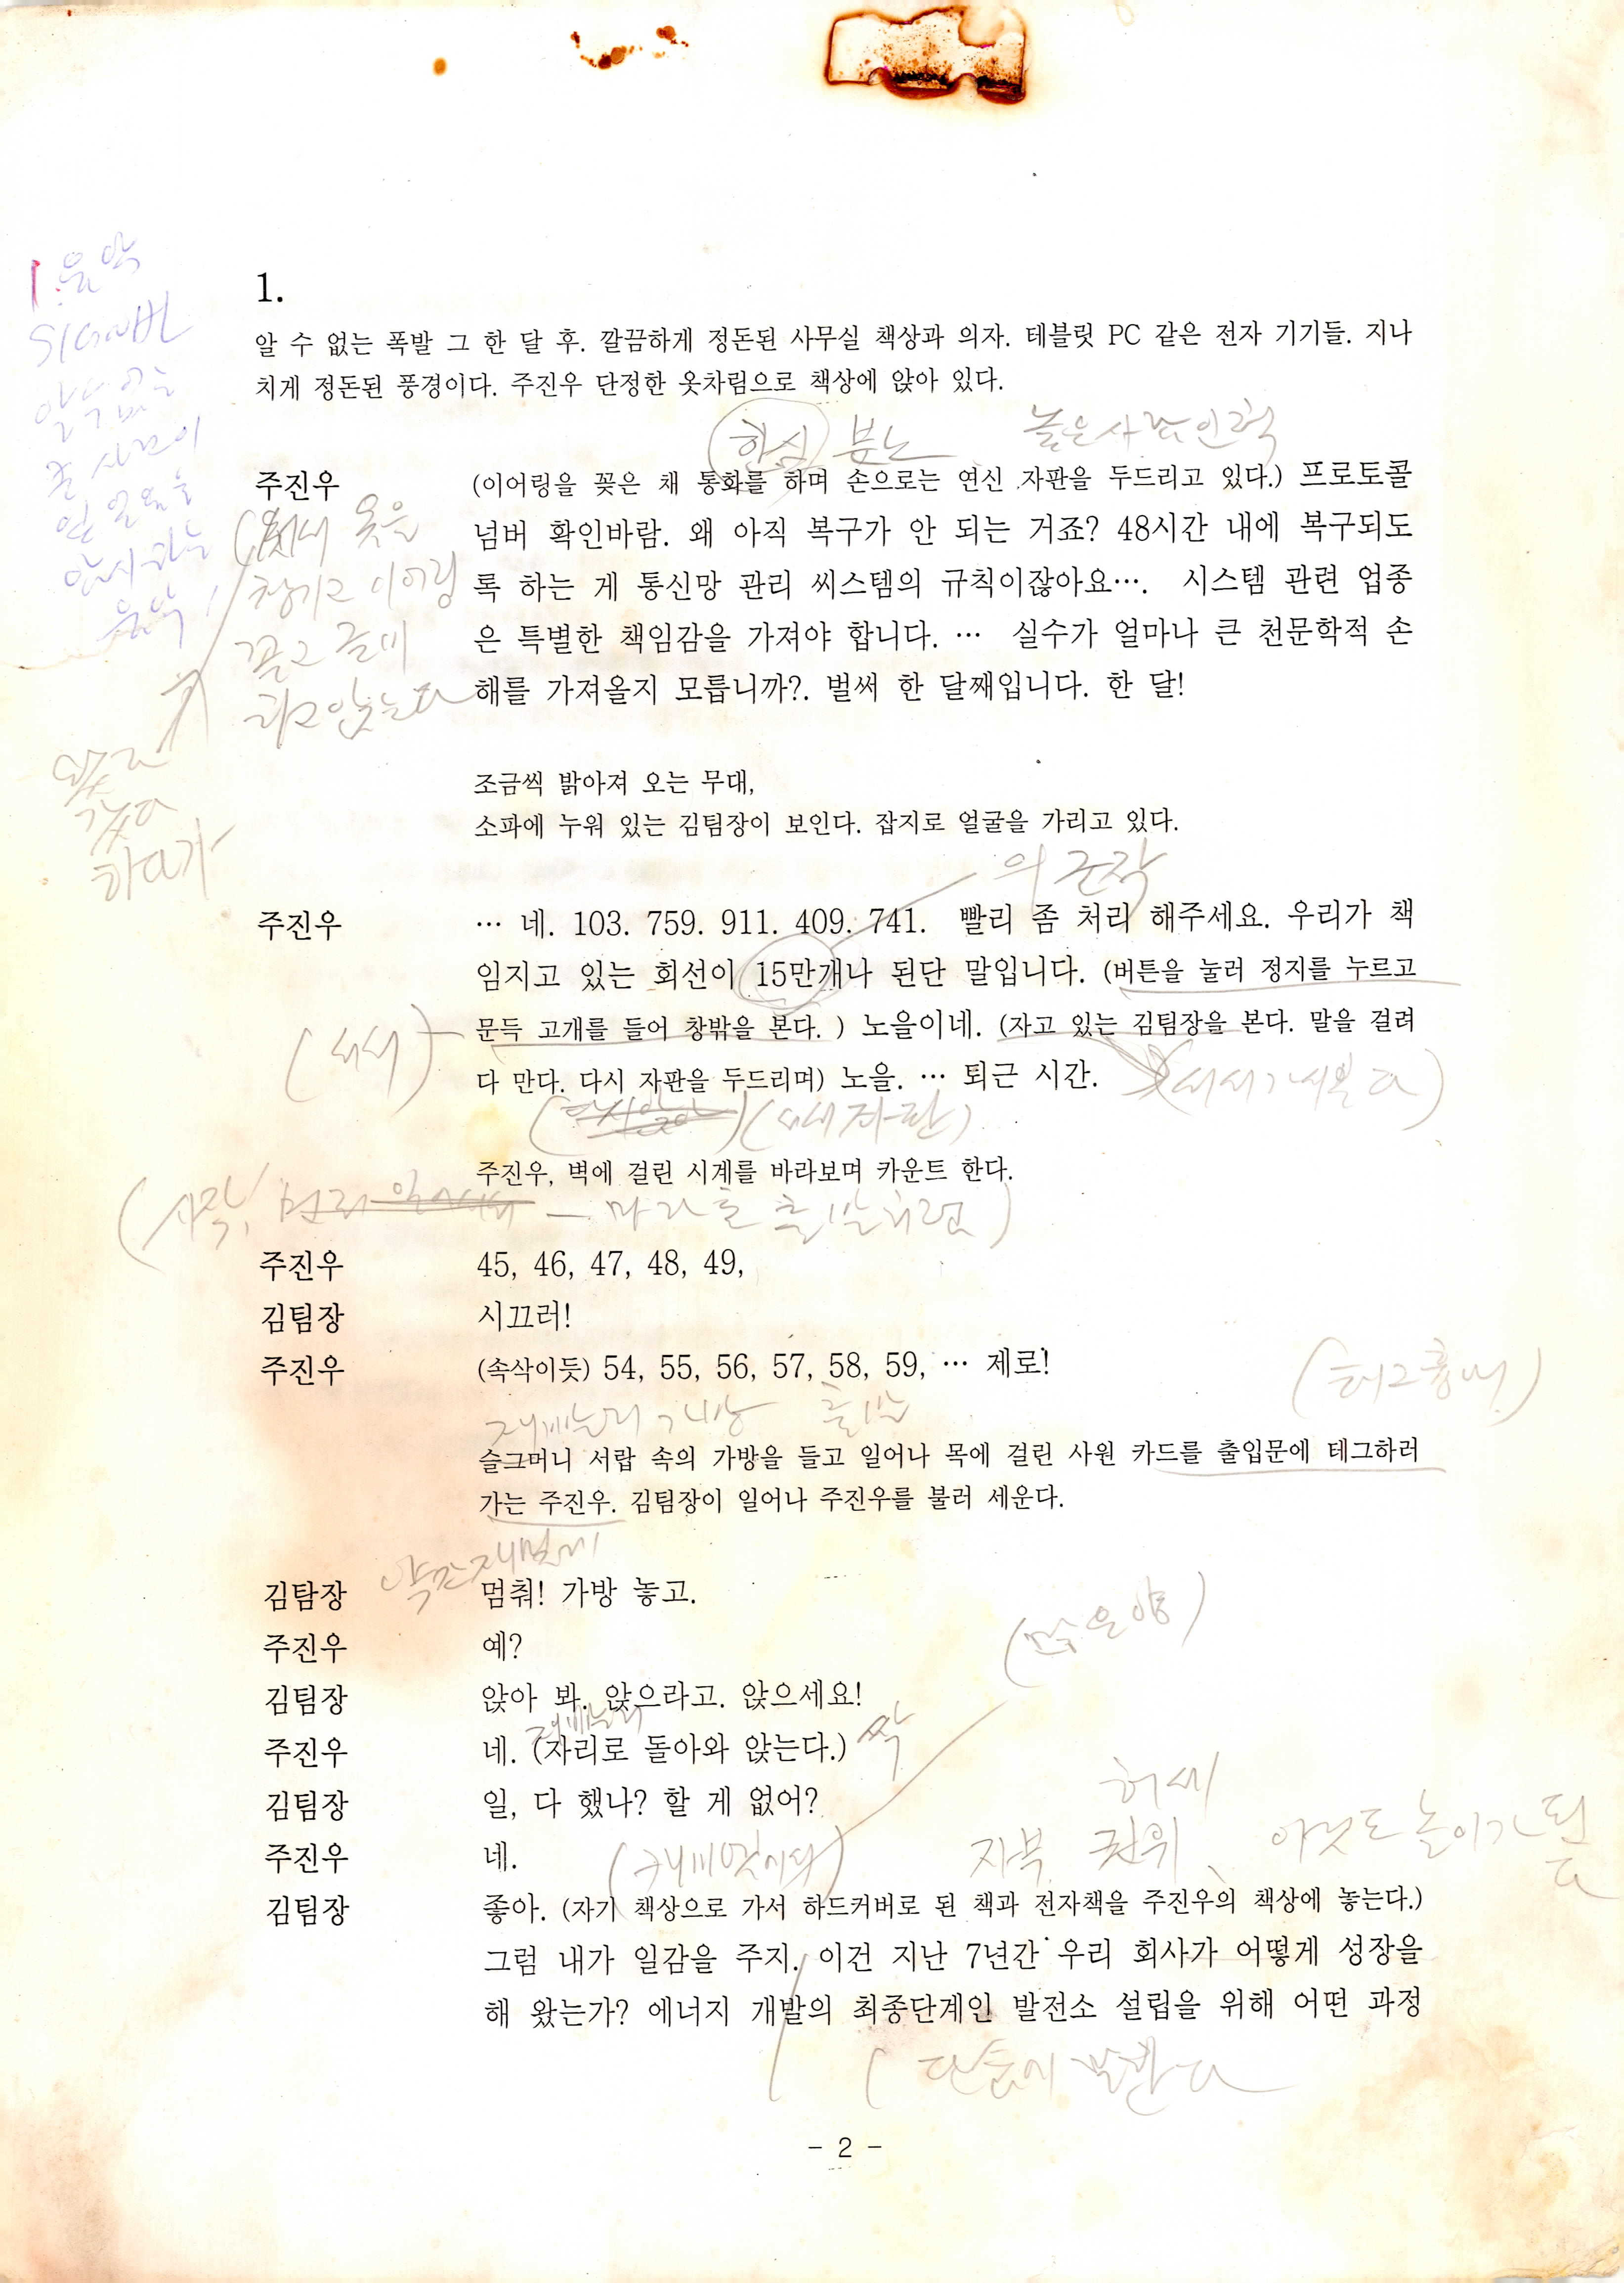 1.
음악
SIGNAL
알 수 없는
큰 사고이
음악
알 수 없는 폭발 그 한 달 후. 깔끔하게 정돈된 사무실 책상과 의자. 테블릿 PC 같은 전자 기기들. 지나
치게 정돈된 풍경이다. 주진우 단정한 옷차림으로 책상에 앉아 있다.
한심 분노
주진우 (이어링을 꽂은 채 통화를 하며 손으로는 연신 자판을 두드리고 있다.) 프로토콜
넘버 확인바람. 왜 아직 복구가 안 되는 거죠? 48시간 내에 복구되도
록 하는 게 통신망 관리 씨스템의 규칙이잖아요…. 시스템 관련 업종
은 특별한 책임감을 가져야 합니다. … 실수가 얼마나 큰 천문학적 손
해를 가져올지 모릅니까?. 벌써 한 달째입니다. 한 달!
(서서 옷을
챙기고 이어링
꼽고 준비
하고 앉는다
하다가
조금씩 밝아져 오는 무대,
소파에 누워 있는 김팀장이 보인다. 잡지로 얼굴을 가리고 있다.
주진우 … 네. 103. 759. 911. 409. 741. 빨리 좀 처리 해주세요. 우리가 책
임지고 있는 회선이 15만개나 된단 말입니다. (버튼을 눌러 정지를 누르고
문득 고개를 들어 창밖을 본다. ) 노을이네. (자고 있는 김팀장을 본다. 말을 걸려
다 만다. 다시 자판을 두드리며) 노을. … 퇴근 시간.
(서서)
(다시앉아) (서서 자판)
주진우, 벽에 걸린 시계를 바라보며 카운트 한다.
(시작! 마라톤 출발처럼)
주진우 45, 46, 47, 48, 49,
김팀장 시끄러!
주진우 (속삭이듯) 54, 55, 56, 57, 58, 59, … 제로!
재빨리 가방 출발
슬그머니 서랍 속의 가방을 들고 일어나 목에 걸린 사원 카드를 출입문에 테그하러
가는 주진우. 김팀장이 일어나 주진우를 불러 세운다.
약간 재밌게
김탐장 멈춰! 가방 놓고.
주진우 예?
김팀장 앉아 봐. 앉으라고. 앉으세요!
주진우 네. (자리로 돌아와 앉는다.)
재빨리
싹
김팀장 일, 다 했나? 할 게 없어?
주진우 네.
(재미있게)
(많은 양)
허세
자부 권위, 이것도 놀이가 된다
김팀장 좋아. (자기 책상으로 가서 하드커버로 된 책과 전자책을 주진우의 책상에 놓는다.)
그럼 내가 일감을 주지. 이건 지난 7년간 우리 회사가 어떻게 성장을
해 왔는가? 에너지 개발의 최종단계인 발전소 설립을 위해 어떤 과정
(단숨에
- 2 -